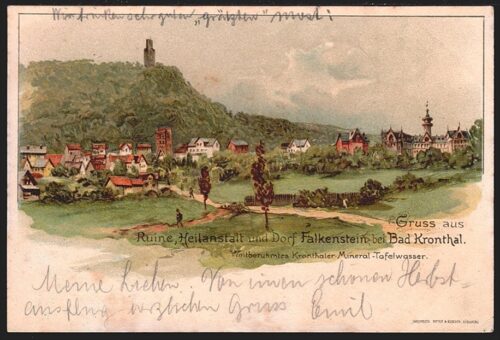 Wir trinken sehr guten „grätzten" most!
Gruss aus
Ruine, Heilanstalt und Dorf Falkenstein bei Bad Kronthal.
Weltberühmtes Kronthaler-Mineral-Tafelwasser.
Meine Lieben. Von einen schönen Herbst-
ausflug herzlichen Gruss Emil